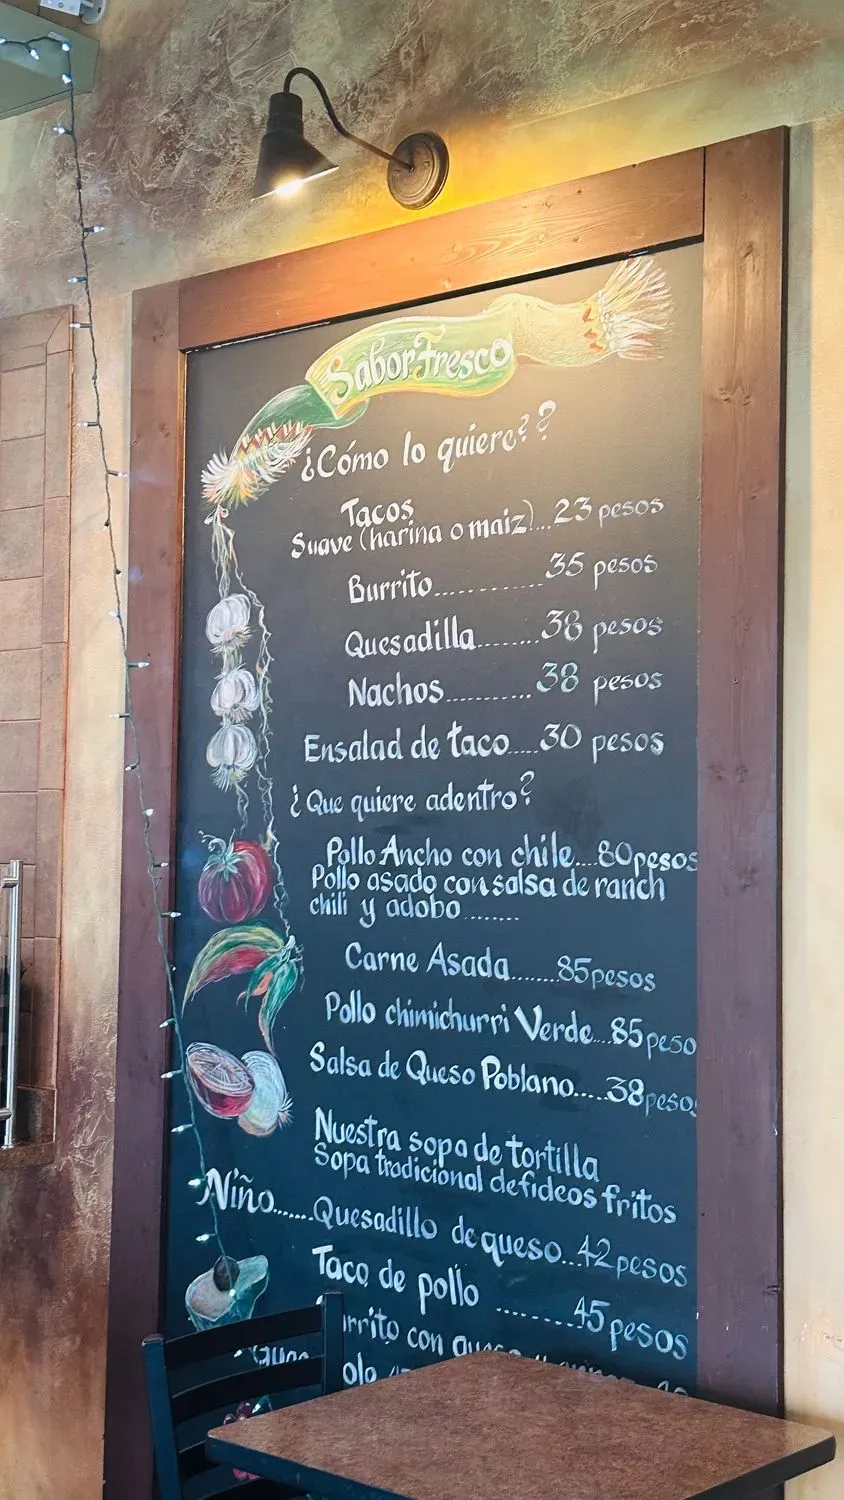 Sabor Fresco
¿Cómo lo quiere??
Tacos
Suave (harina o maiz)...23 pesos
Burrito...........35 pesos
Quesadilla........38 pesos
Nachos..........38 pesos
Ensalad de taco.....30 pesos
¿Que quiere adentro?
Pollo Ancho con chile....80pesos
Pollo asado con salsa de ranch
chili y adobo.......
Carne Asada.......85pesos
Pollo chimichurri Verde...85peso
Salsa de Queso Poblano.....38pesos
Nuestra sopa de tortilla
Sopa tradicional de fideos fritos
Niño.......Quesadillo de queso...42 pesos
Taco de pollo ........45 pesos
con